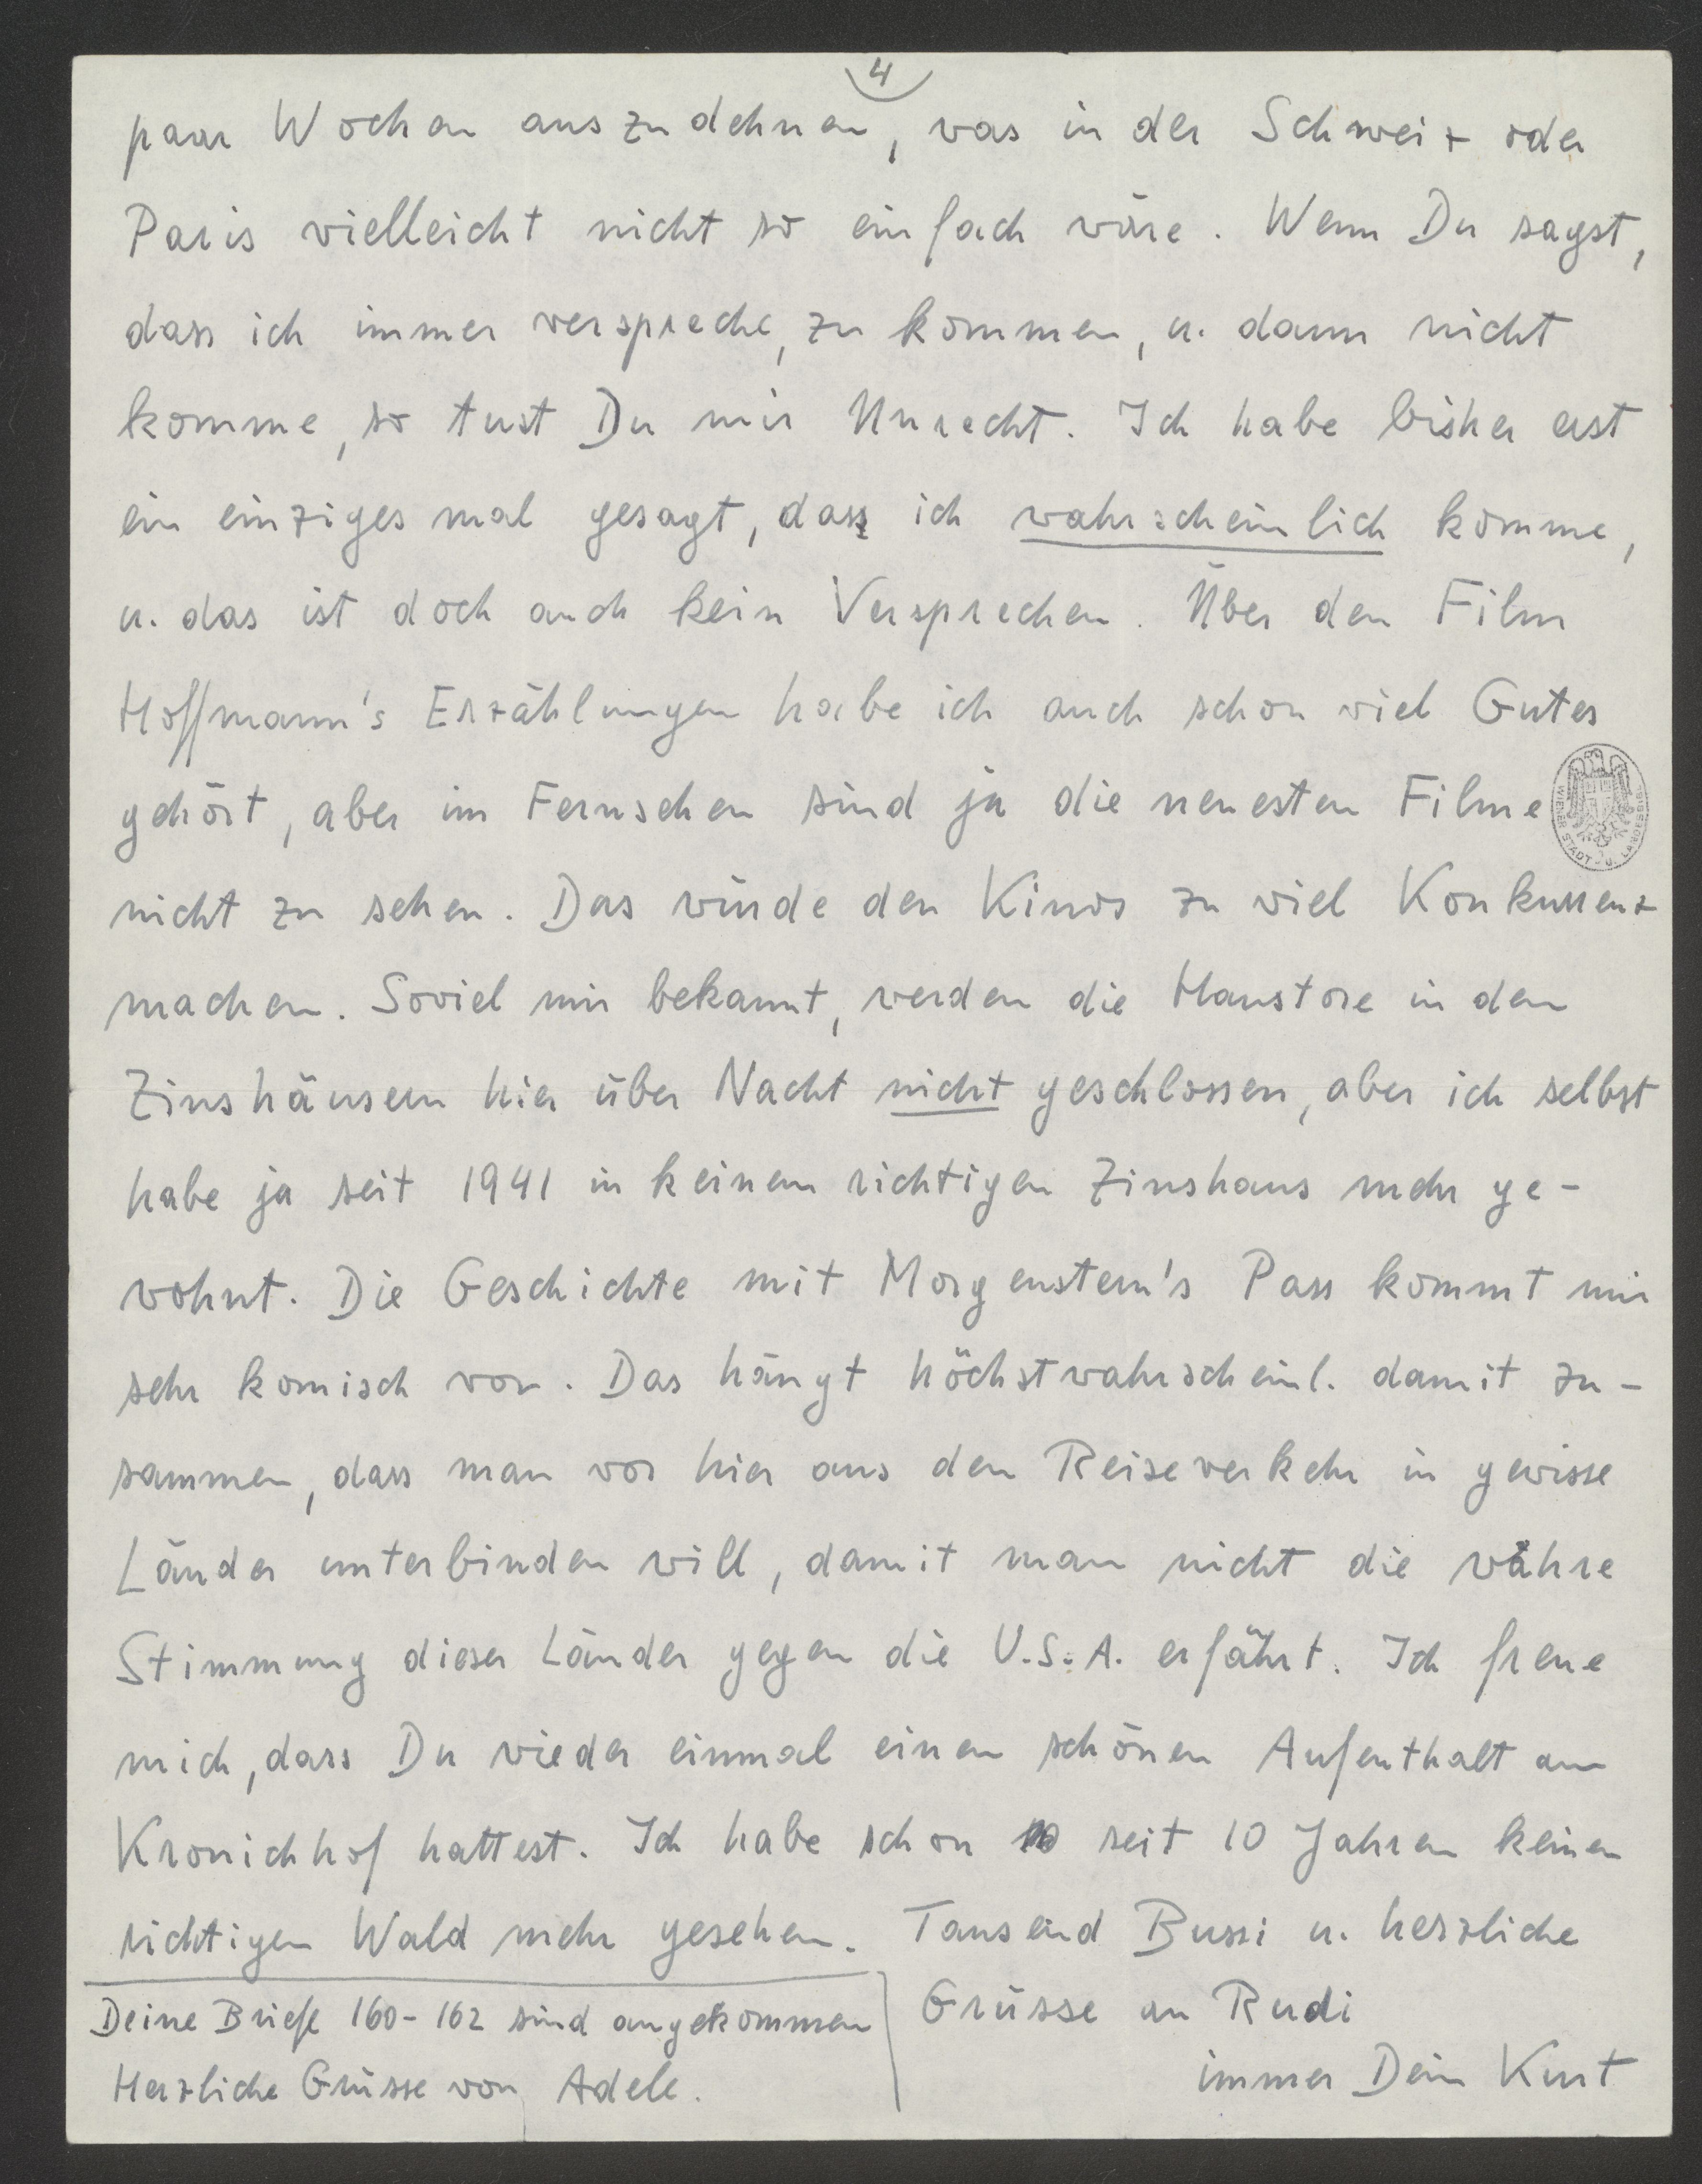 4
paar Wochen auszudehnen, was in der Schweiz oder
Paris vielleicht nicht so einfach wäre. Wenn Du sagst,
dass ich immer verspreche, zu kommen, u. dann nicht
komme, so tust Du mir Unrecht. Ich habe bisher erst
ein einziges mal gesagt, dass ich wahrscheinlich komme,
u. das ist doch auch kein Versprechen. Über den Film
Hoffmann's Erzählungen habe ich auch schon viel Gutes
gehört, aber im Fernsehen sind ja die neuesten Filme
WIENER STADT- U. LANDESBIB.
nicht zu sehen. Das würde den Kinos zu viel Konkurrenz
machen. Soviel mir bekannt, werden die Haustore in den
Zinshäusern hier über Nacht nicht geschlossen, aber ich selbst
habe ja seit 1941 in keinem richtigen Zinshaus mehr ge-
wohnt. Die Geschichte mit Morgenstern's Pass kommt mir
sehr komisch vor. Das hängt höchstwahrscheinl. damit zu-
sammen, dass man vor hier aus den Reiseverkehr in gewisse
Länder unterbinden will, damit man nicht die wahre
Stimmung dieser Länder gegen die U.S.A. erfährt. Ich freue
mich, dass Du wieder einmal einen schönen Aufenthalt am
Kronichhof hattest. Ich habe schon seit 10 Jahren keinen
richtigen Wald mehr gesehen. Tausend Bussi u. herzliche
Grüsse an Rudi
immer Dein Kurt
Deine Briefe 160-162 sind angekommen
Herzliche Grüsse von Adele.